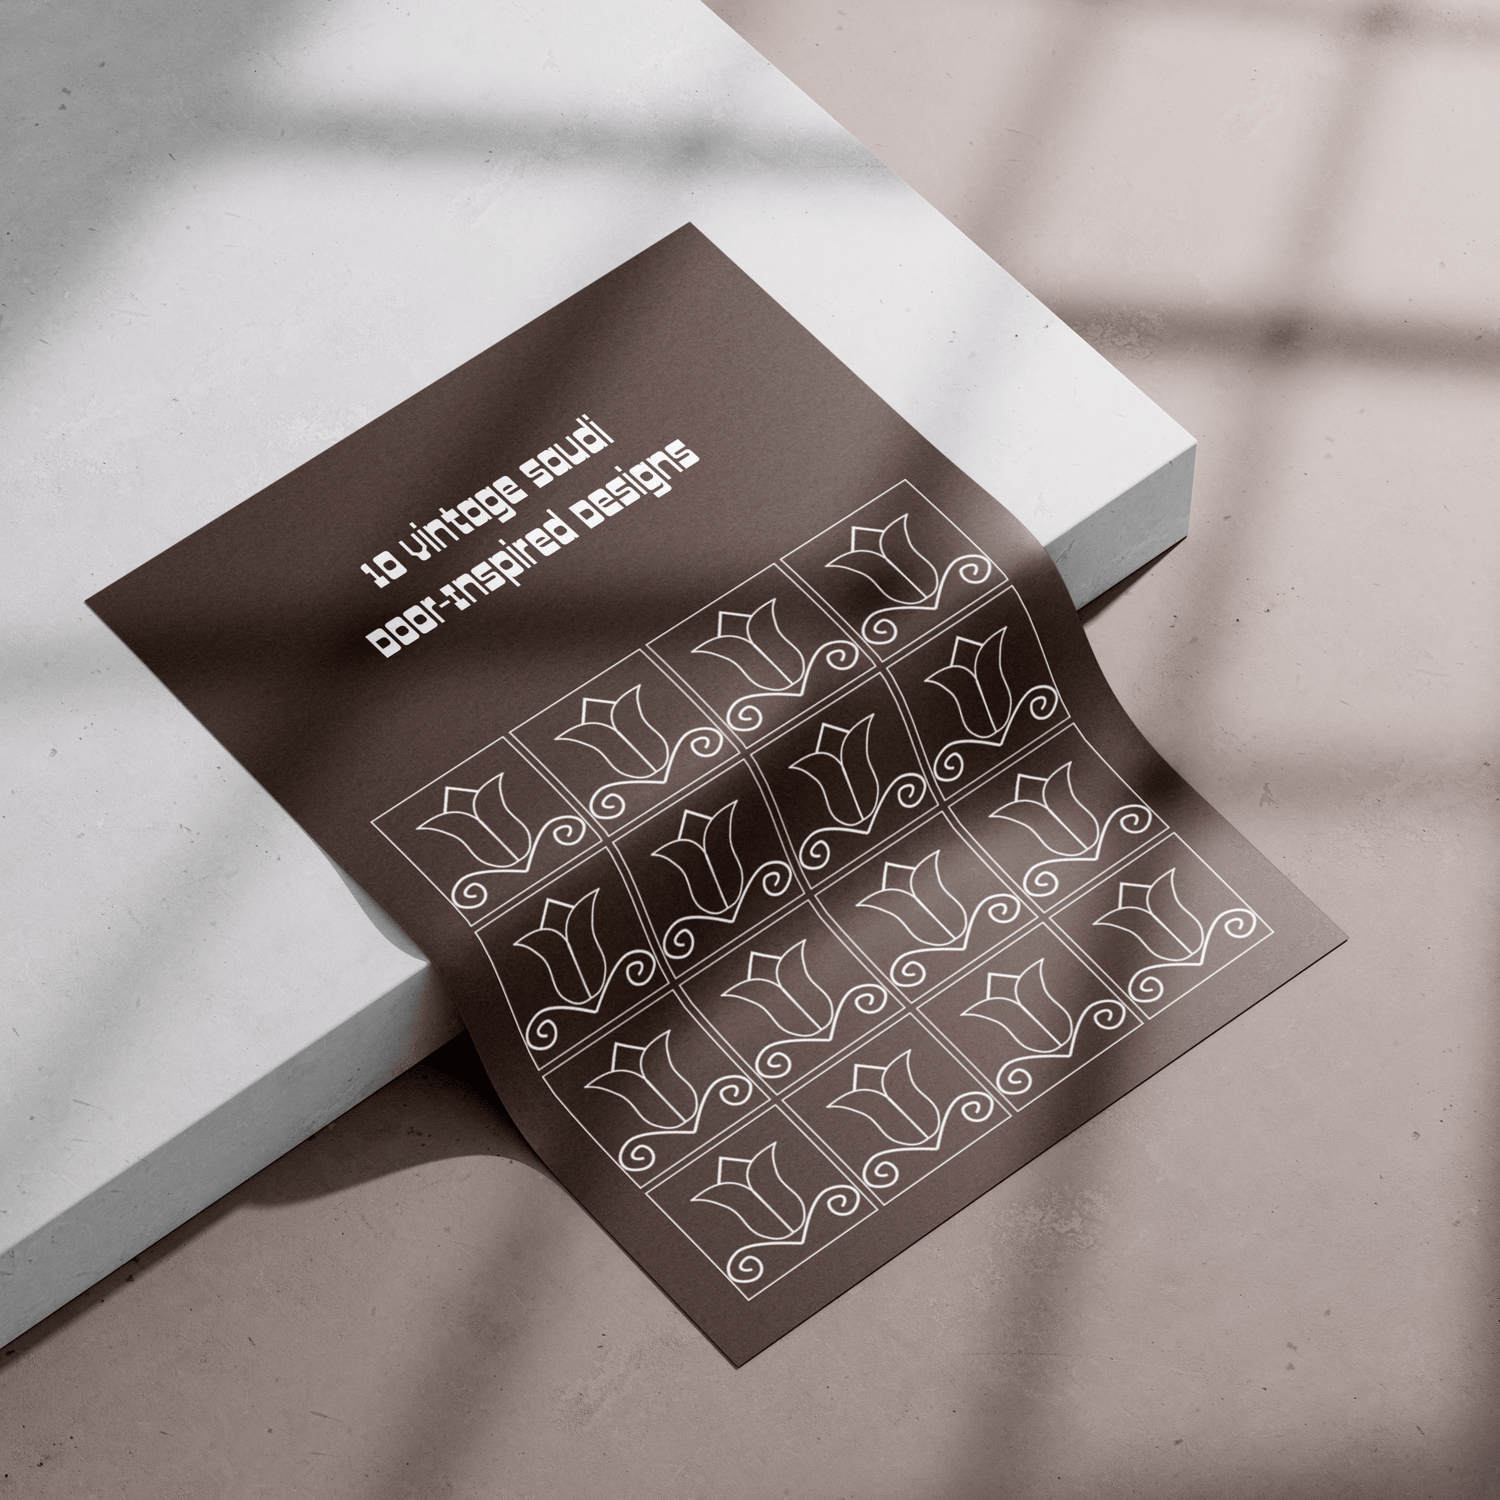 10 vintage saudi
Door-Inspired Designs